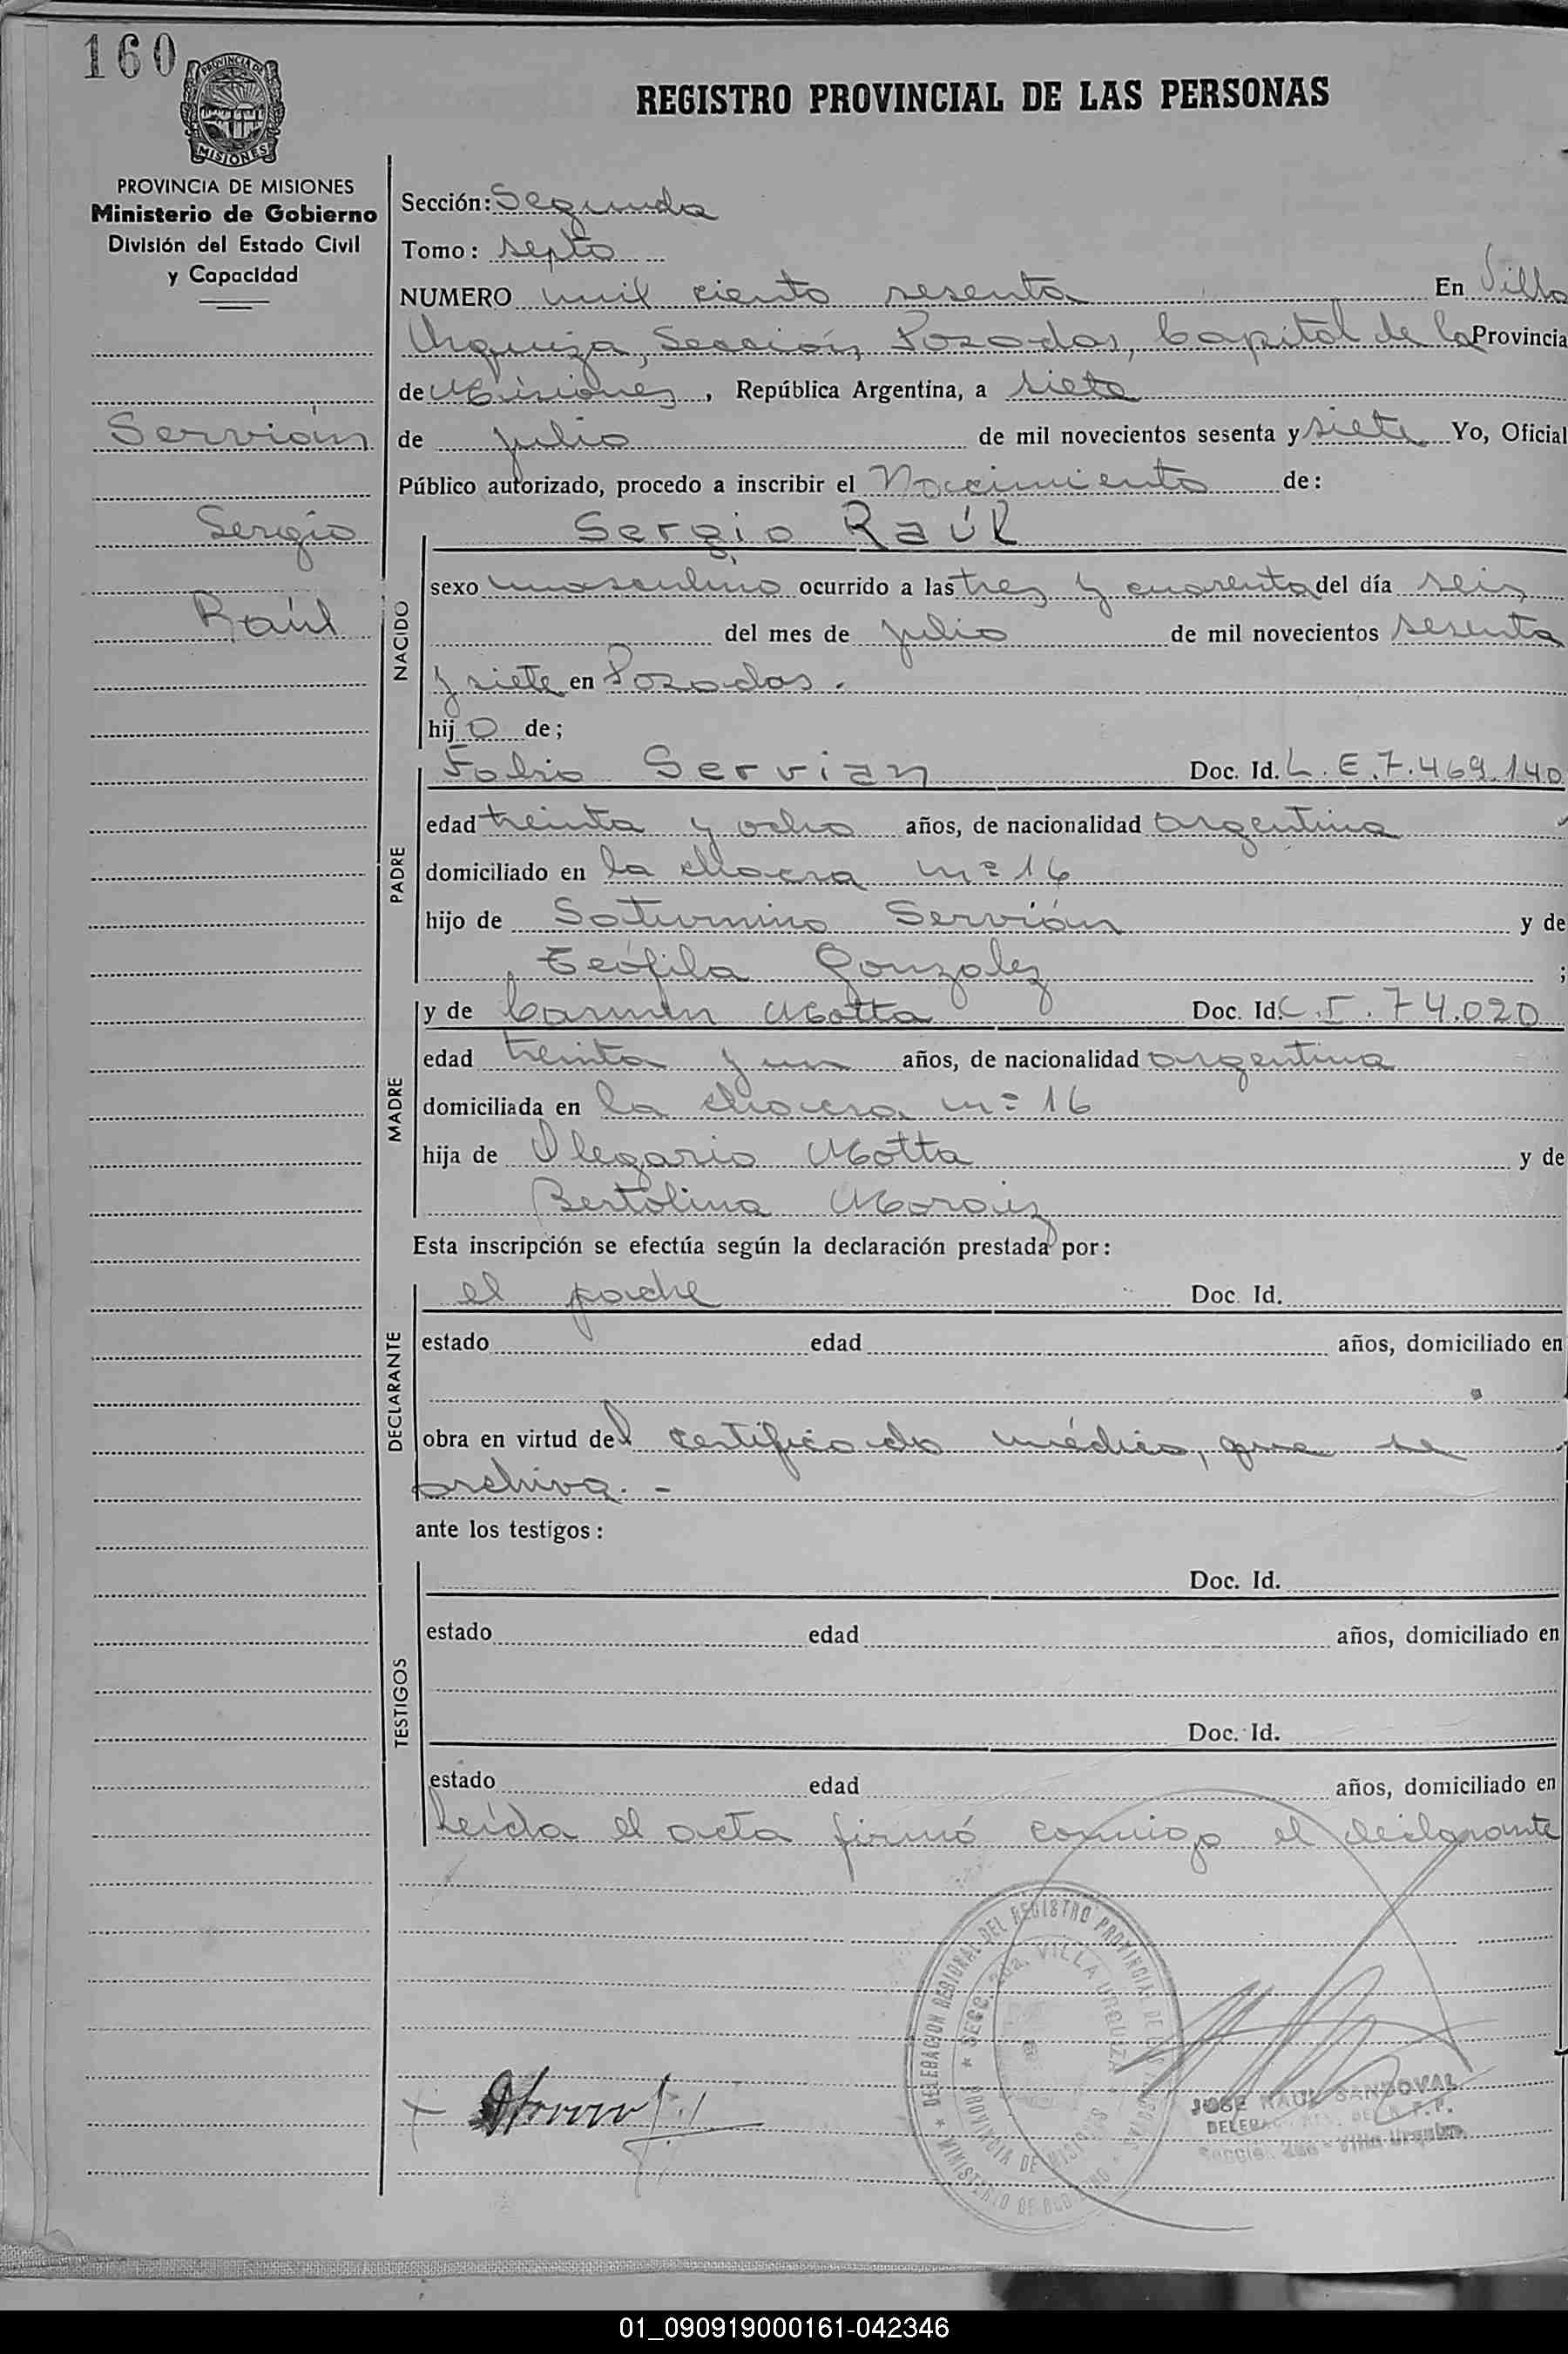 160
PROVINCIA DE MISIONES
REGISTRO PROVINCIAL DE LAS PERSONAS
PROVINCIA DE MISIONES
Ministerio de Gobierno
División del Estado Civil
y Capacidad
Servián
Sergio
Raúl
Sección: Segunda
Tomo: septo
NUMERO mil ciento sesenta En Villa
Urquiza, Sección Posadas, Capital de la Provincia
de Misiones, República Argentina, a siete
de julio de mil novecientos sesenta y siete Yo, Oficial
Público autorizado, procedo a inscribir el Nacimiento de:
NACIDO
Sergio Raúl
sexo masculino ocurrido a las tres y cuarenta del día seis
del mes de julio de mil novecientos sesenta
y siete en Posadas.
hijo de;
PADRE
Fabio Servian Doc. Id. L.E.7.469.140
edad treinta y ocho años, de nacionalidad argentina
domiciliado en la chacra nº 16
hijo de Saturnino Servián y de
Teófila Gonzalez ;
MADRE
y de Carmen Motta Doc. Id. C.I. 74.020
edad treinta y un años, de nacionalidad argentina
domiciliada en la chacra nº 16
hija de Olegario Motta y de
Bertolina
Esta inscripción se efectúa según la declaración prestada por:
DECLARANTE
el padre Doc. Id.
estado edad años, domiciliado en
obra en virtud del certificado médico, que se
archiva. -
ante los testigos:
TESTIGOS
Doc. Id.
estado edad años, domiciliado en
Doc. Id.
estado edad años, domiciliado en
Leída el acta firmó conmigo el declarante
DELEGACION REGIONAL DEL REGISTRO PROVINCIAL DE LAS PERSONAS
SECC. 2da. VILLA URQUIZA
PROVINCIA DE MISIONES
MINISTERIO DE GOBIERNO
JOSE RAUL SANDOVAL
Sección 2da - Villa Urquiza
01_090919000161-042346